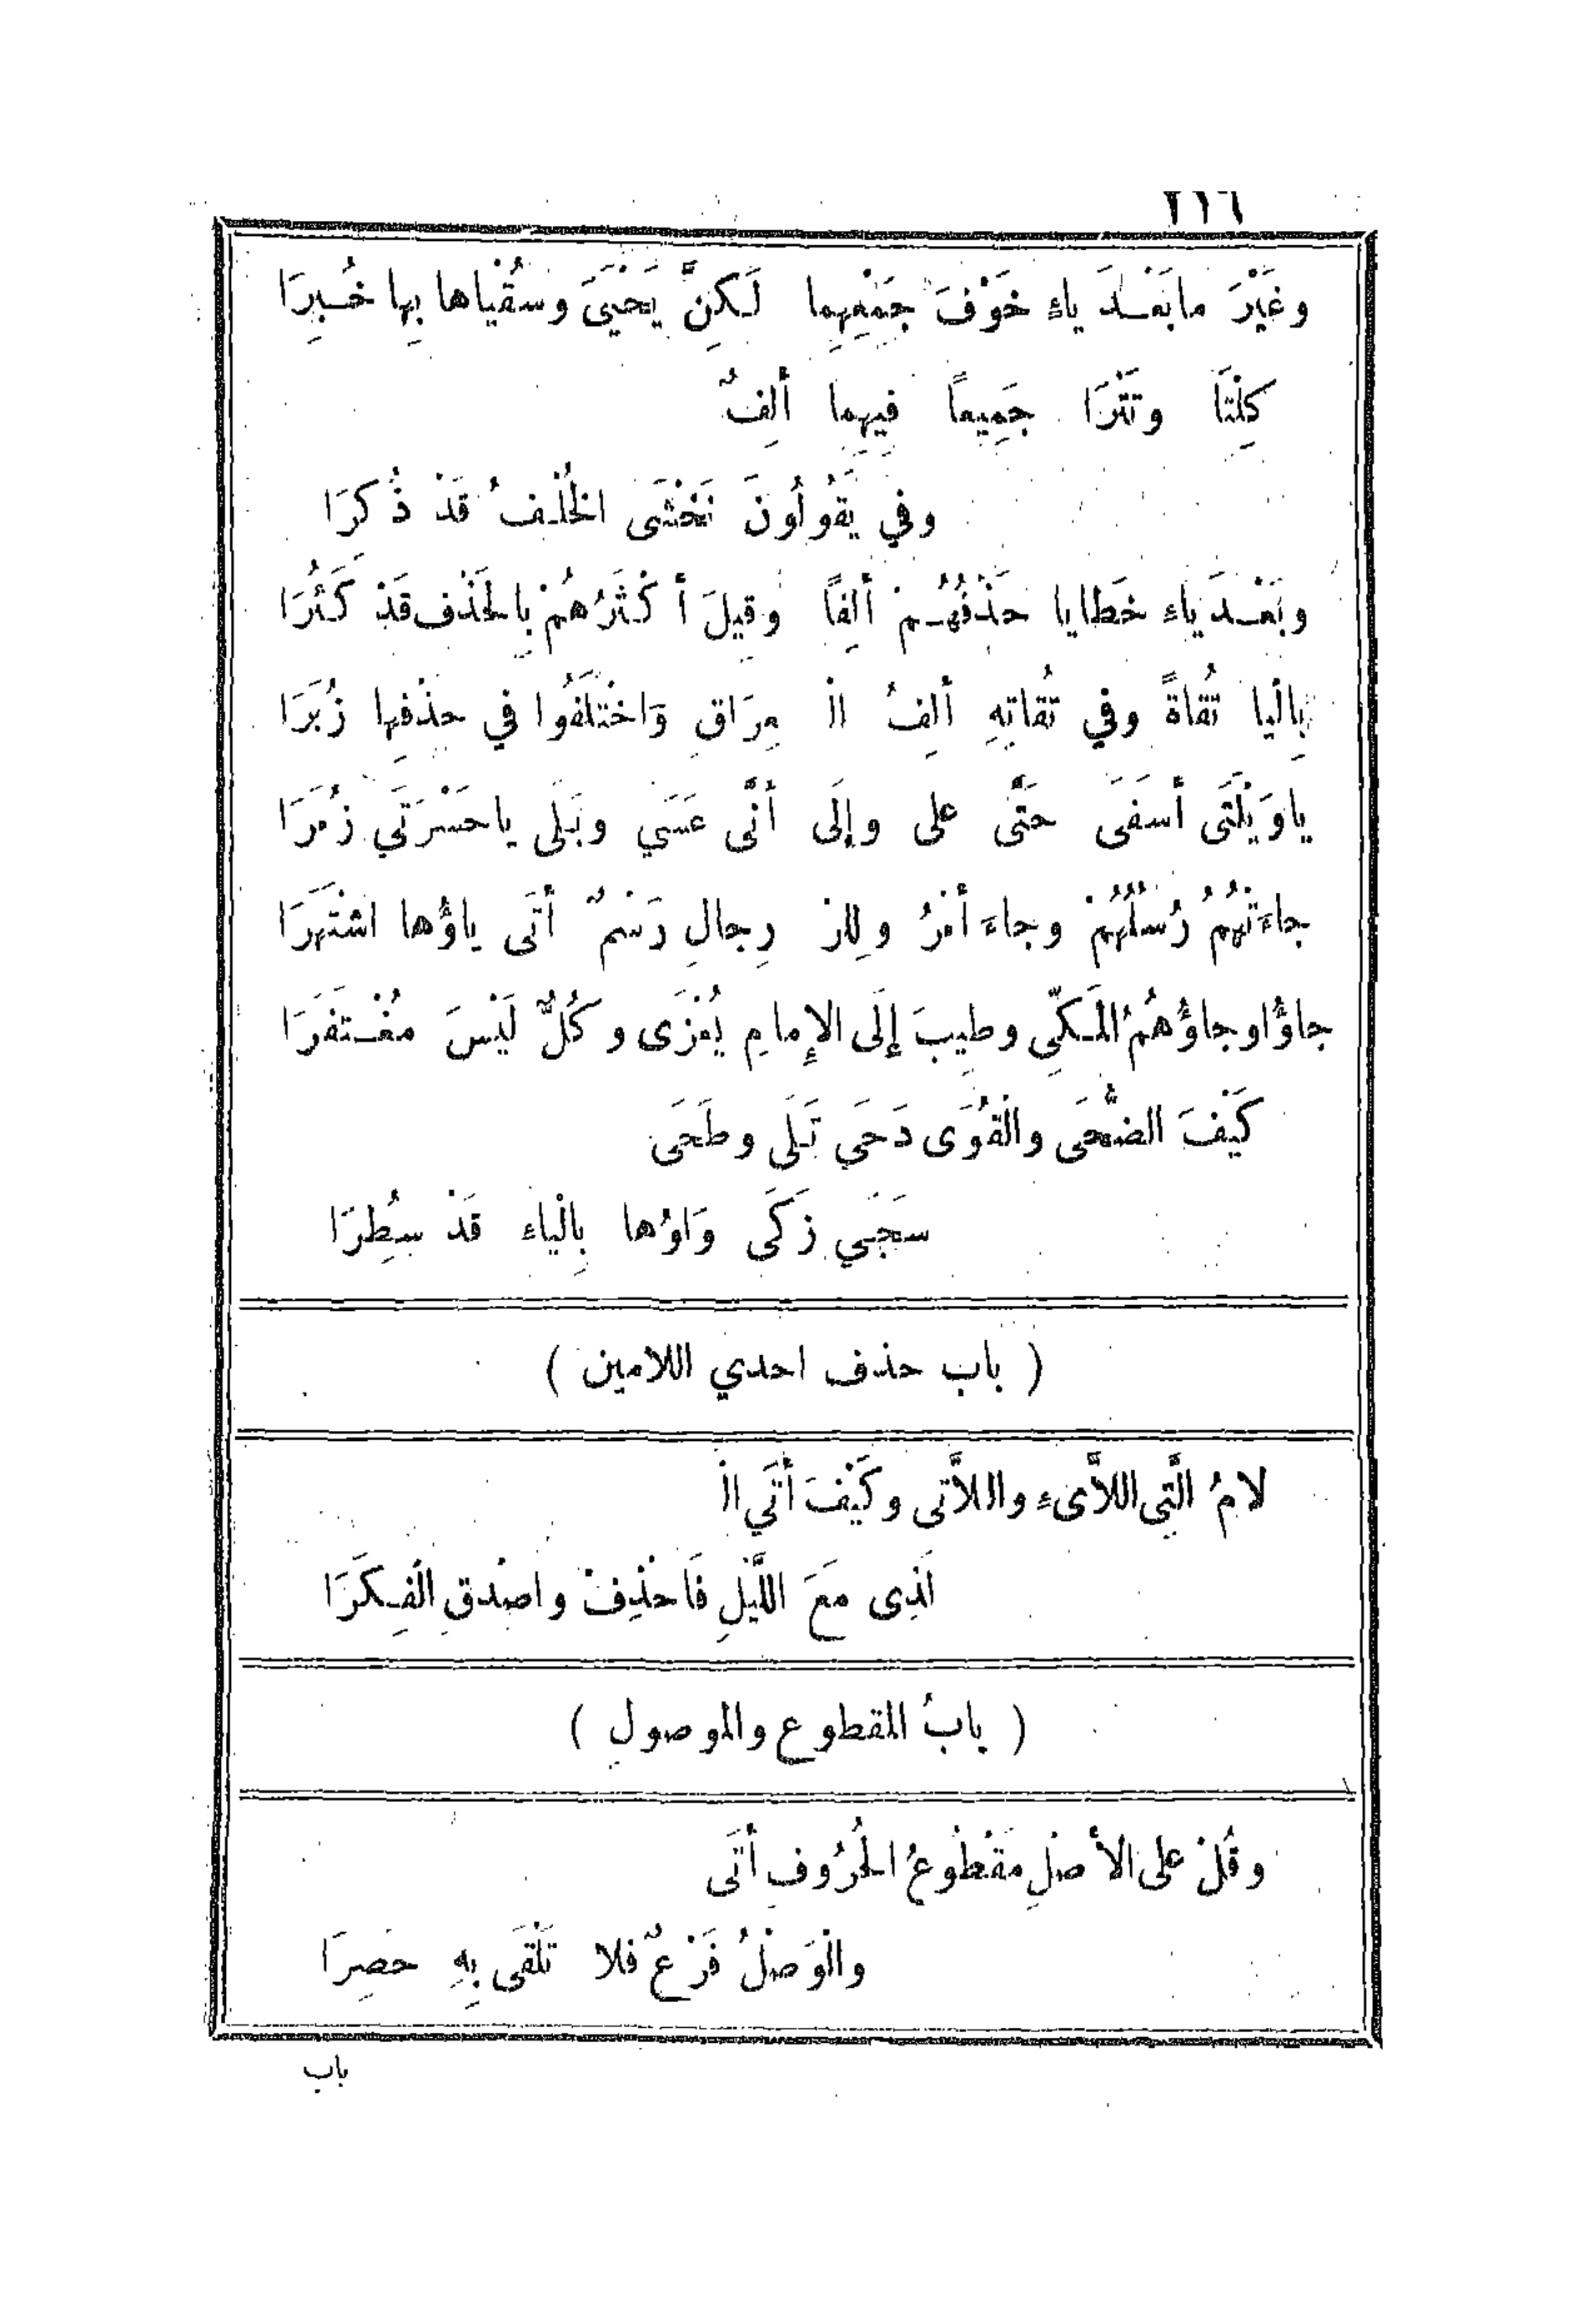 ٢١٦
وغَيْرَ مابَعْدَ ياءٍ خَوْفَ جَمْعِهِما لَكِنَّ يَحْيَىَ وسُقْيَاها بِها خُبِرَا
كِلْتَا وتَتْرَا جَمِيعاً فِيهِما ألِفٌ
وفي يَقُولُونَ نَخْشَى الخُلْفُ قَدْ ذُكرَا
وبَعْدَ ياء خَطايا حَذْفُهُمْ ألِفاً وقيلَ أكْثَرُهُمْ بِالحَذْفِ قَدْ كَثُرَا
بِالْيا تُقاةً وفي تُقاتِهِ ألِفُ الْ عِرَاقِ وَاخْتَلَفُوا في حذْفِها زُبَرَا
ياوَيْلَتَى أسَفَى حَتَّى على وإلَى أنَّى عَسَى وبَلَى ياحَسْرَتَي زُمَرَا
جاءَتْهُمُ رُسْلُهُمْ وجاءَ أمْرُ ولِلرْ رِجالِ رَسْمٌ أتَى ياؤُها اشْتَهَرَا
جاؤُا وجاؤُهُمُ المَكِّى وطِيبَ إلَى الإِمامِ يُعْزَى وكُلٌّ لَيْسَ مُفْتَقَرَا
كَيْفَ الضُّحَى والْقُوَى دَحَى تَلَى وطَحَى
سَجَى زَكَى وَاوُها بِالْياء قَدْ سُطِرَا
( باب حذف احدي اللامين )
لامُ الَّتِى اللَّاىء واللَّاتى وكَيْفَ أتَي الْ
لَذِى مَعَ اللَّيْلِ فَاحْذِفْ واصْدُقِ الْفِكَرَا
( بابُ المقطوع والموصولِ )
وقُلْ على الأصْلِ مَقْطُوعُ الحُرُوفِ أتَى
والْوَصْلُ فَرْعٌ فلا تَلْقَى بِهِ حَصِرَا
باب